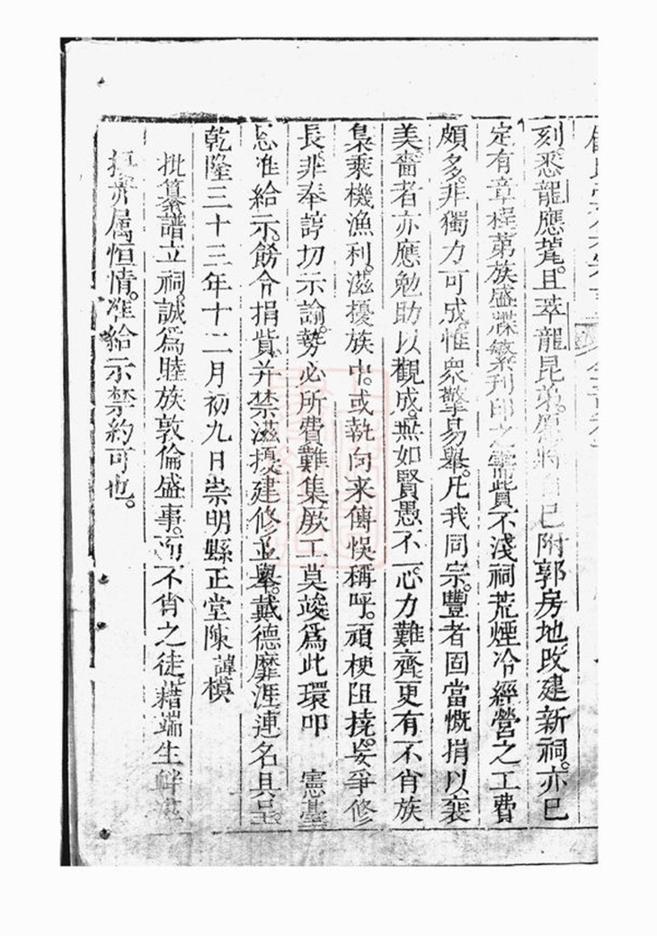 刻。悉龍應麾。且萃龍昆弟。將自已附郭房地。改建新祠。亦已
定有章程。第族盛牒繁。刊印之需貲不淺。祠荒煙冷。經營之工費
頗多。非獨力可成。惟衆擎易舉。凡我同宗。豐者固當慨捐以襄
美。嗇者亦應勉助以觀成。無如賢愚不一。心力難齊。更有不肖族
梟。乘機漁利。滋擾族中。或執向来傳悞稱呼。頑梗阻撓。妄爭修
長。非奉諄切示諭。勢必所費難集。厥工莫竣。爲此環叩　憲臺
准給示。飭令捐貲。并禁滋擾。建修並舉。戴德靡涯。連名具呈。
乾隆三十三年十二月初九日崇明縣正堂陳諱模
批。纂譜立祠。誠爲睦族敦倫盛事。而不肖之徒。藉端生衅。滋
擾。亦屬恒情。准給示禁約可也。